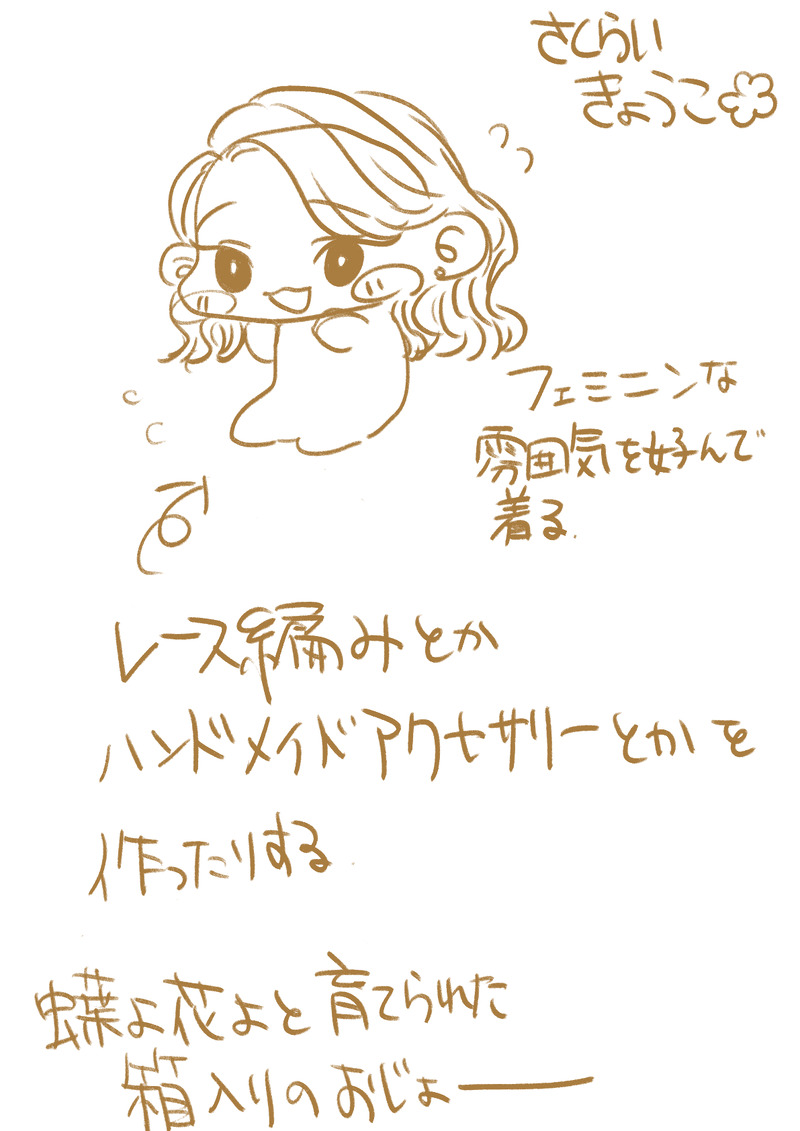 さくらい
きょうこ
フェミニンな
雰囲気を好んで
着る.
レース編みとか
ハンドメイドアクセサリーとかを
作ったりする
蝶よ花よと育てられた
箱入りのおじょー